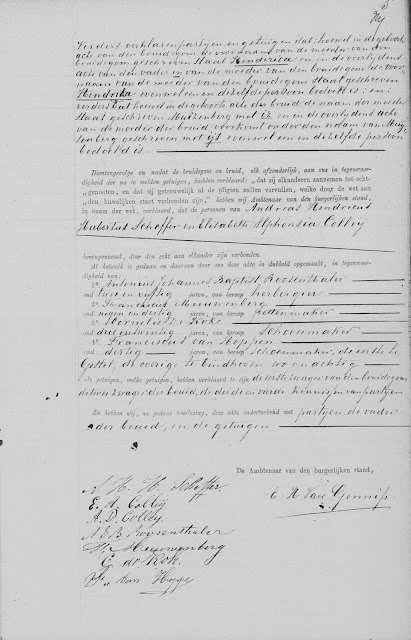 Verders verklaren partyen en getuigen dat hoewel in de geboorte
acte van den bruidegom de voornaam van de moeder van den
bruidegom geschreven staat Henderica en in de overlydens
acte van den vader en van de moeder van den bruidegom de voor-
naam van de moeder van den bruidegom staat geschreven
Hendrika, evenwel een en dezelfde persoon bedoeld is: en
verders dat hoewel in de geboorte acte der bruid de naam der moeder
staat geschreven met en in de overlydens acte
van de moeder der bruid voorkomt onder den naam van
geschreven met evenwel een en dezelfde persoon
bedoeld is.
Dientengevolge en nadat de bruidegom en bruid, elk afzonderlijk, aan ons in tegenwoor-
digheid der na te melden getuigen, hadden verklaard: „dat zij elkanderen aannemen tot echt-
„genooten, en dat zij getrouwelijk al de pligten zullen vervullen, welke door de wet aan
„den huwelijken staat verbonden zijn,” hebben wij Ambtenaar van den burgerlijken stand,
in naam der wet, verklaard, dat de personen van Andreas Hendricus
Hubertus Schoffer en Elisabeth Alphonsia Colleij
bovengenoemd, door den echt aan elkander zijn verbonden.
Al hetwelk is gedaan en daarvan door ons deze akte in dubbeld opgemaakt, in tegenwoor-
digheid van:
1º. Antonius Johannes Baptist Roosenthaler
oud twee en vijftig jaren, van beroep herbergier
2º. Franciscus Meeuwenberg
oud negen en dertig jaren, van beroep pottenmaker
3º. Kornelis De Kok
oud drie en twintig jaren, van beroep Schoenmaker
4º. Franciscus van Hoppen
oud dertig jaren, van beroep schoenmaker, de eerste te
Gestel, de overige te Eindhoven woonachtig
als getuigen, welke getuigen, hebben verklaard te zijn de eerste zwager van den bruidegom
de tweede zwager der bruid, de derde en vierde kennissen van partyen
En hebben wij, na gedane voorlezing, deze akte onderteekend met partyen, de vader
der bruid, en de getuigen
De Ambtenaar van den burgerlijken stand,
A. H. H. Schoffer
E. A. Colleij
A. D. Colleij
A J B Roosenthaler
Fr Meeuwenberg
C. de Kok
F. van Hoppe